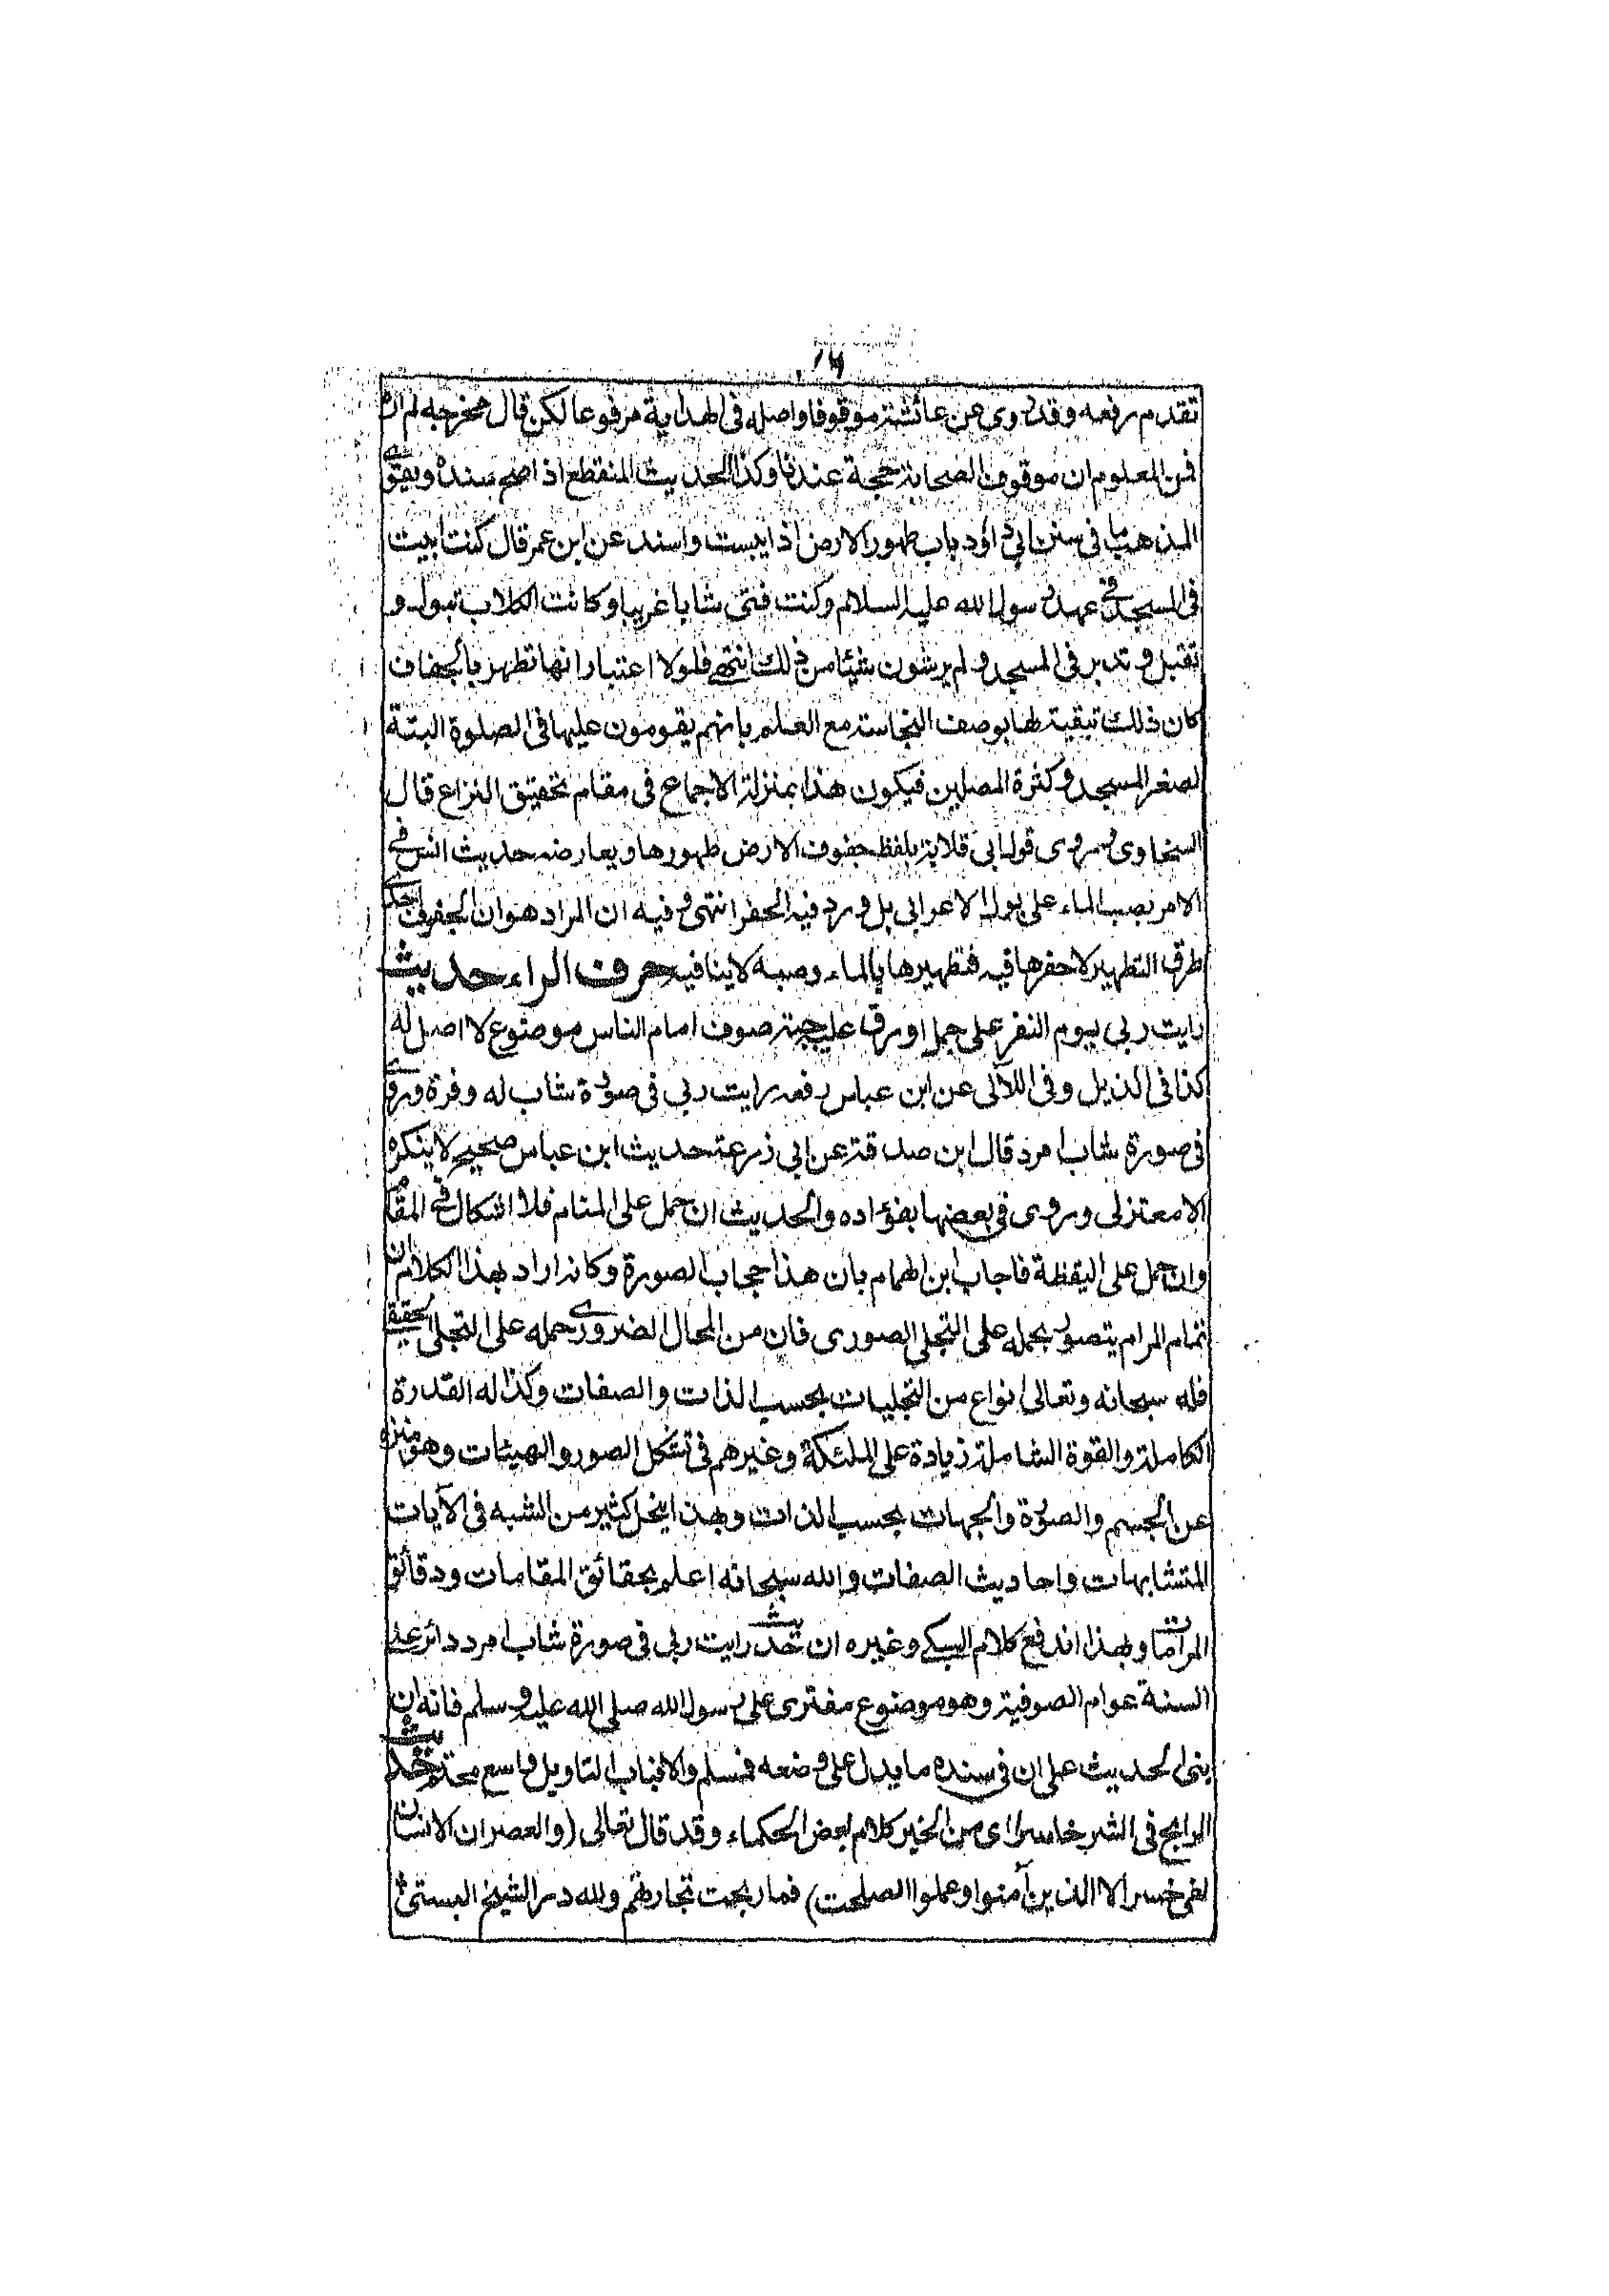 تقدم رفعه وقد روى عن عائشة موقوفا واصله فى الهداية مرفوعا لكن قال مخرجه لم اره
فمن المعلوم ان موقوف الصحابة حجة عندنا وكذا الحديث المنقطع اذا صح سنده ويقوى
المذهب ما فى سنن ابى داؤد باب طهور الارض اذا يبست واسند عن ابن عمر قال كنت ابيت
فى المسجد فى عهد رسول الله عليه السلام وكنت فتى شابا غريبا وكانت الكلاب تبول و
تقبل وتدبر فى المسجد ولم يرشون شيئا من ذلك انتهى فلولا اعتبار انها تطهر بالجفاف
كان ذلك تبقية لها بوصف النجاسة مع العلم بانهم يقومون عليها فى الصلوة البتة
لصغر المسجد وكثرة المصلين فيكون هذا بمنزلة الاجماع فى مقام تحقيق النزاع قال
السخاوى وروى قول ابى قلابة بلفظ جفوف الارض طهورها ويعارضه حديث انس فى
الامر بصب الماء على بول الاعرابى بل ورد فيه الحفر انتهى وفيه ان المراد هو ان الجفوف احد
طرق التطهير لا حفرها فيه فتطهيرها بالماء وصبه لا ينافيه حرف الراء حديث
رايت ربى يوم النفر على جمل اورق عليه جبة صوف امام الناس موضوع لا اصل له
كذا فى الذيل وفى اللآلى عن ابن عباس رفعه رايت ربى فى صورة شاب له وفرة وروى
فى صورة شاب امرد قال ابن صدقة عن ابى زرعة حديث ابن عباس صحيح لا ينكره
الا معتزلى وروى فى بعضها بفؤاده والحديث ان حمل على المنام فلا اشكال فى المقام
وان حمل على اليقظة فاجاب ابن الهمام بان هذا حجاب الصورة وكانه اراد بهذا الكلام ان
تمام المرام يتصور بحمله على التجلى الصورى فان من المحال الضرورى حمله على التجلى الحقيقى
فله سبحانه وتعالى انواع من التجليات بحسب الذات والصفات وكذا له القدرة
الكاملة والقوة الشاملة زيادة على الملئكة وغيرهم فى تشكل الصور والهيئات وهو منزه
عن الجسم والصورة والجهات بحسب الذات وبهذا ينحل كثير من الشبه فى الآيات
المتشابهات واحاديث الصفات والله سبحانه اعلم بحقائق المقامات ودقائق
المرامات وبهذا اندفع كلام السبكى وغيره ان حديث رايت ربى فى صورة شاب امرد دائر على
السنة عوام الصوفية وهو موضوع مفترى على رسول الله صلى الله عليه وسلم فانه ان
بنى الحديث على ان فى سنده ما يدل على وضعه فمسلم والا فباب التاويل واسع محتم حديث
الرابح فى الشر خاسر اى من الخير كلام بعض الحكماء وقد قال تعالى (والعصر ان الانسان
لفى خسر الا الذين آمنوا وعملوا الصلحت) فما ربحت تجارتهم ولله در الشيخ البستى